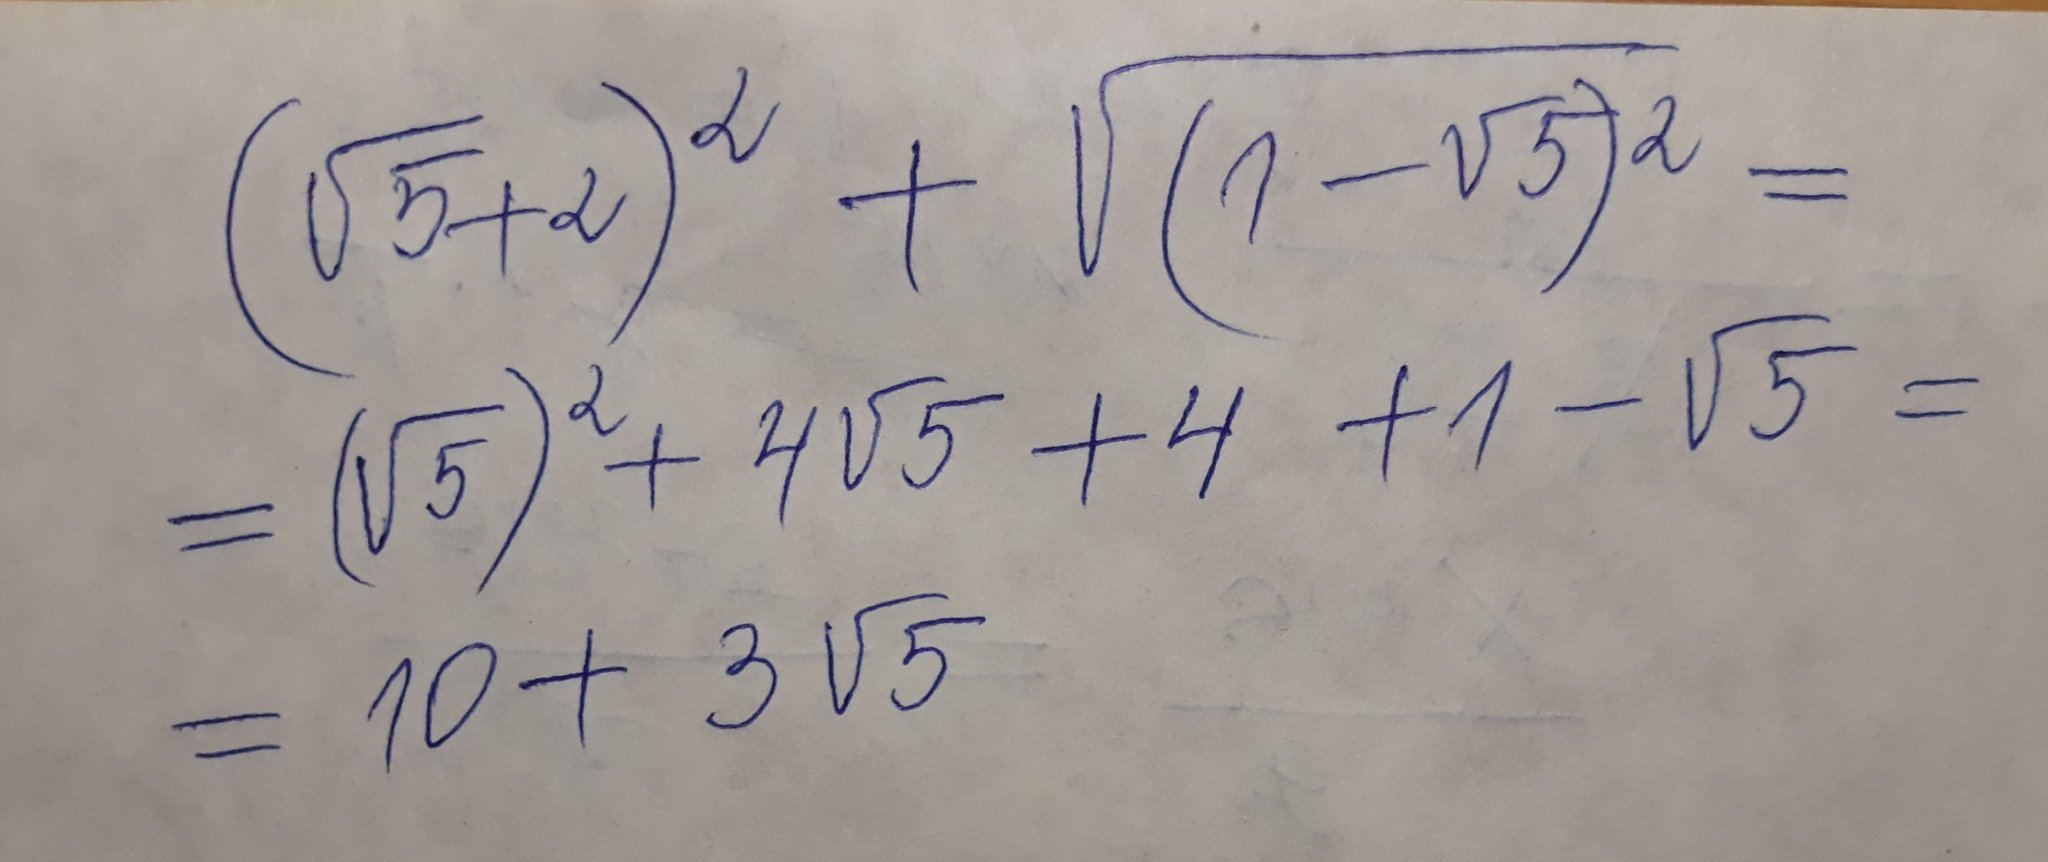 (√5+2)² + √(1-√5)² =
= (√5)² + 4√5 + 4 + 1 - √5 =
= 10 + 3√5